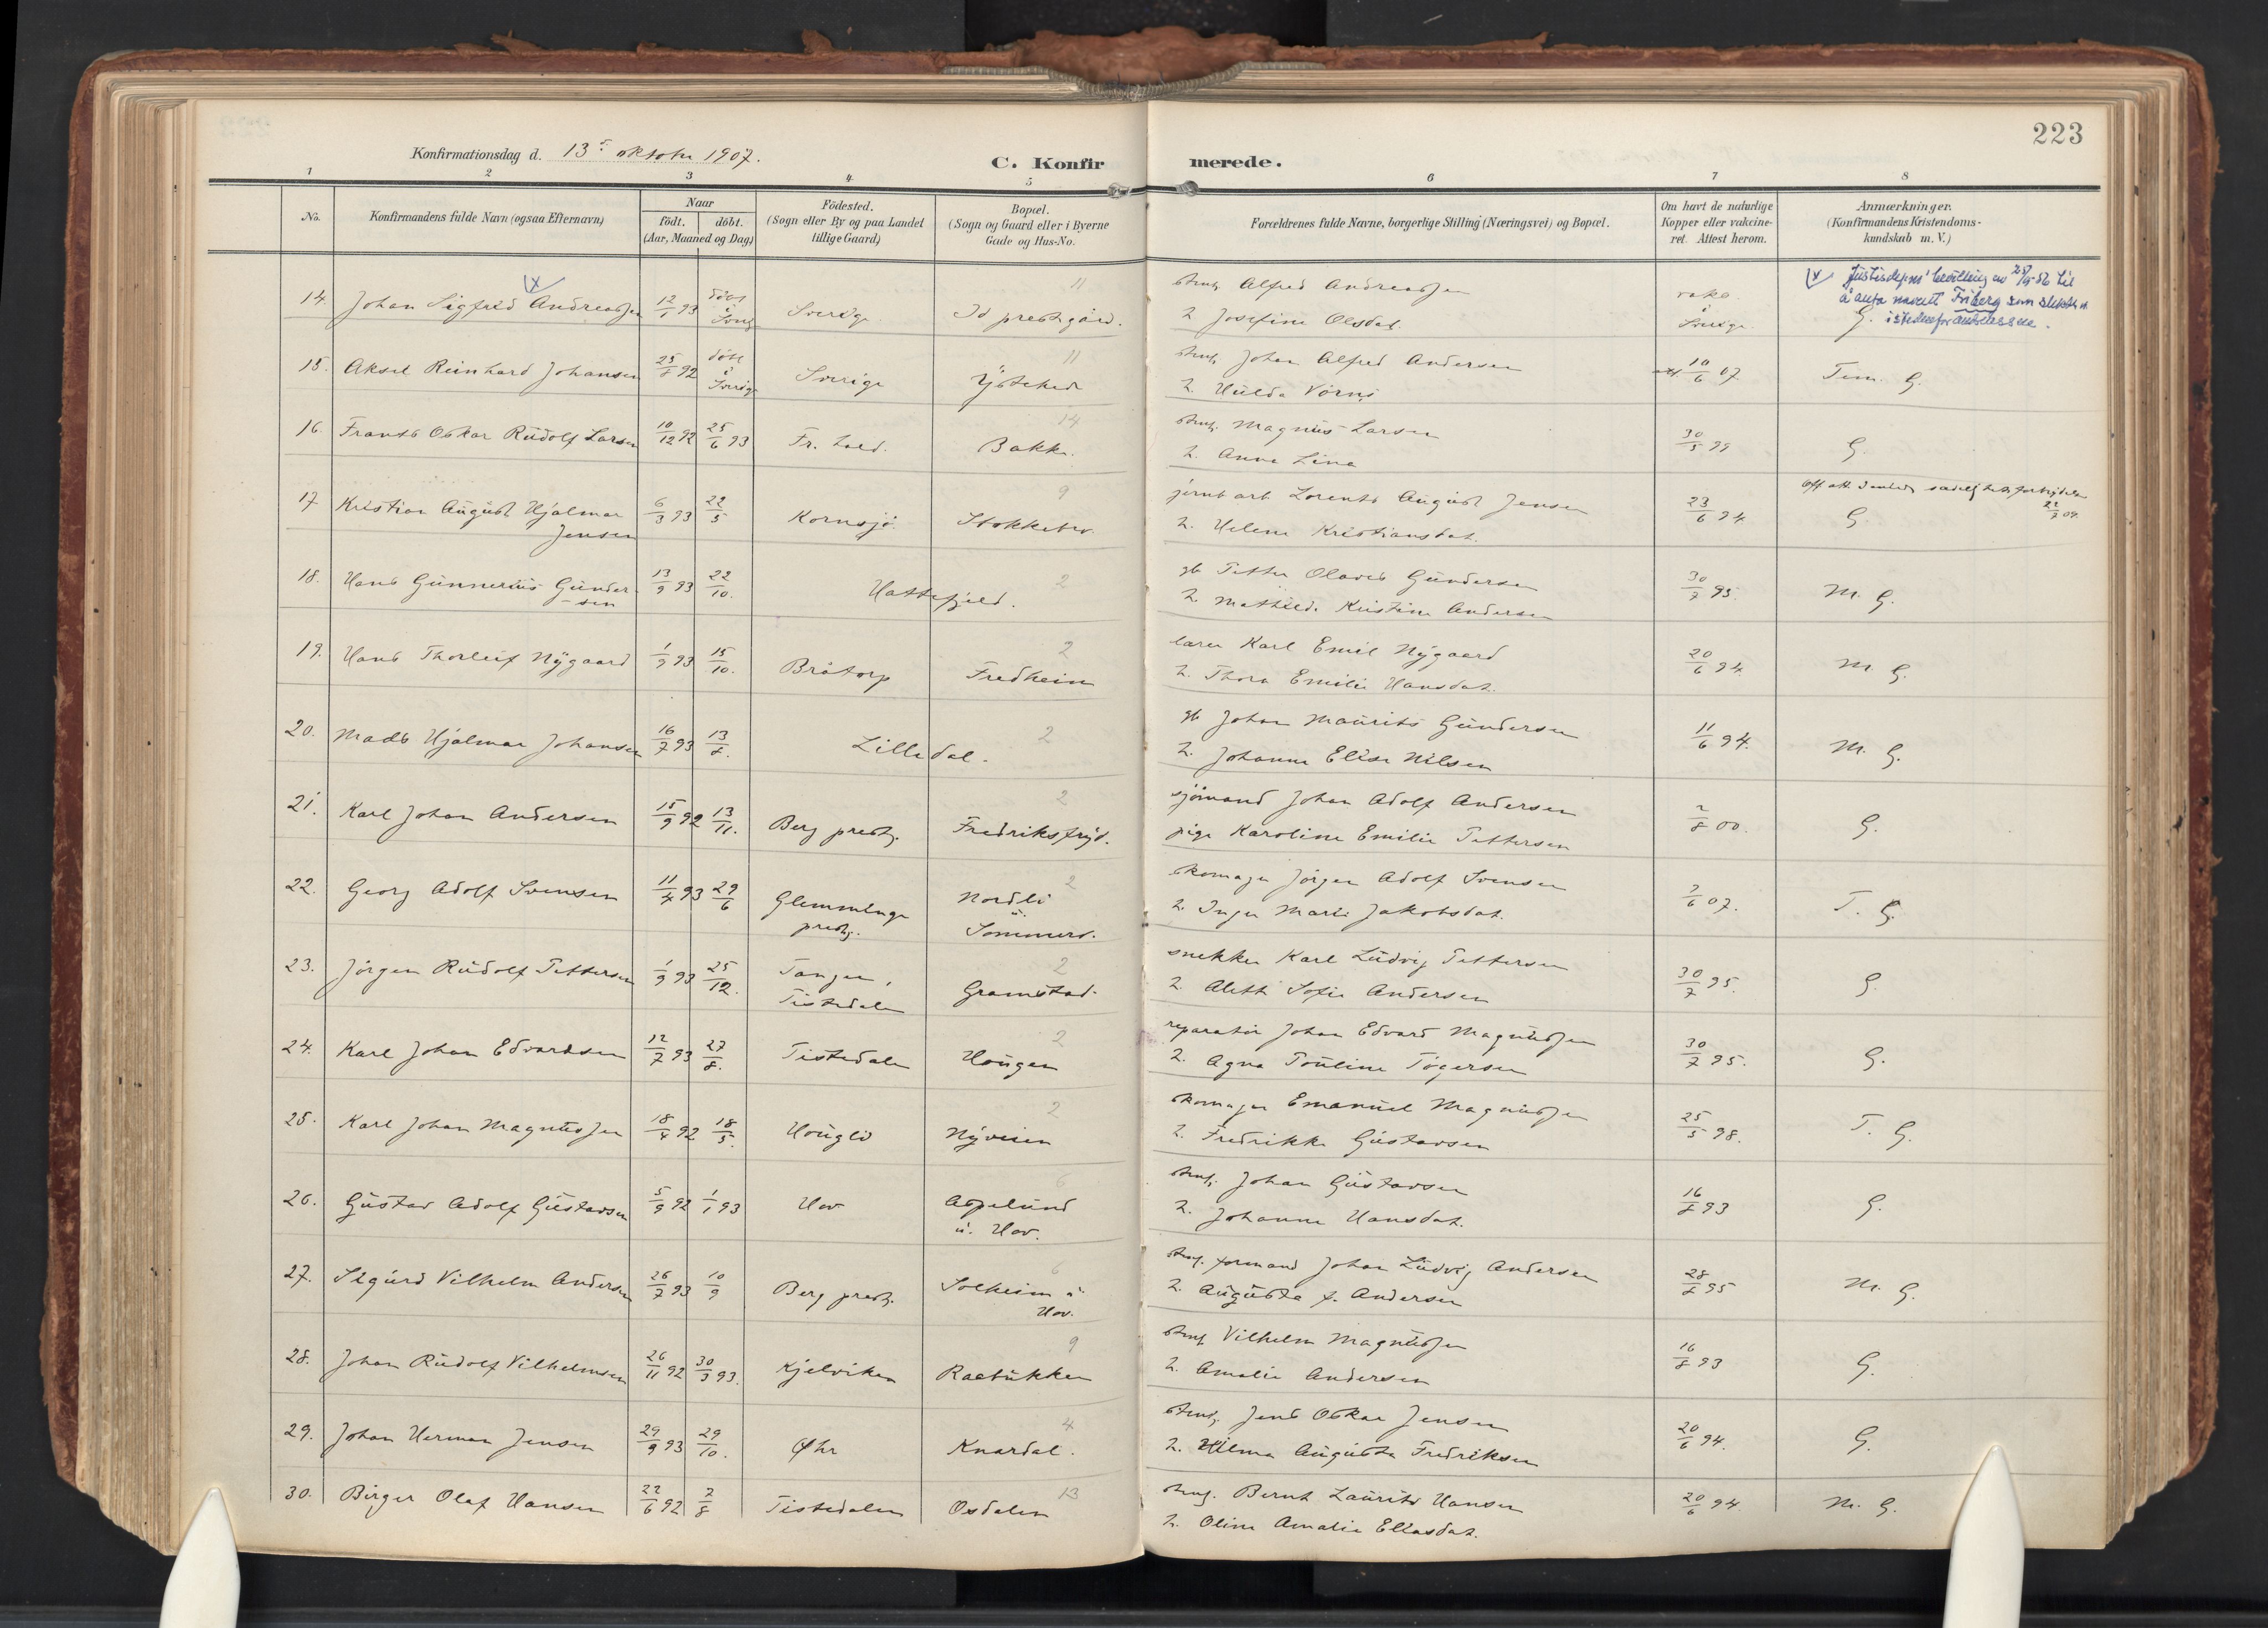 223
Konfirmationsdag d. 13de oktober 1907.
C. Konfirmerede.
1 2 3 4 5 6 7 8
No.
Konfirmandens fulde Navn (ogsaa Efternavn)
Naar
født. døbt.
(Aar, Maaned og Dag)
Fødested.
(Sogn eller By og paa Landet
tillige Gaard)
Bopæl.
(Sogn og Gaard eller i Byerne
Gade og Hus-No.
Forældrenes fulde Navne, borgerlige Stilling (Næringsvei) og Bopæl.
Om havt de naturlige
Kopper eller vakcine-
ret. Attest herom.
Anmærkninger.
(Konfirmandens Kristendoms-
kundskab m. V.)
14. Johan Sigfred Andreassen 12/1 93 døbt i Sverige Sverige Id prestgård. 11
Alfred Andreassen
h. Josefine Olsdat.
vakc. i Sverige G.
å anta navnet Friberg som slektsn.
istedenfor Andreassen.
15. Aksel Reinhard Johansen 25/8 92 døbt i Sverige Sverige 11
Johan Alfred Andersen
h. Hulda
10/6 07. Tem. G.
16. Frants Oskar Rudolf Larsen 10/12 92 25/6 93 Fr. hald. Bakke. 14
Magnus Larsen
h. Anna Lina
30/5 99 G.
17. Kristian August Hjalmar
Jensen 6/3 93 22/5 Kornsjø Stokkebro. 9
jernb arb Lorents August Jensen
h. Helene Kristiansdat.
23/6 94. G.
22/7 09.
18. Hans Gunnerius Gunder-
-sen 13/9 93 22/10. Hattefjeld. 2
gb Petter Olaves Gundersen
h. Mathilde Kristine Andersen
30/7 95. M. G.
19. Hans Thorleif Nygaard 1/9 93 15/10. Bråtorp Fredheim 2
lærer Karl Emil Nygaard
h. Thora Emilie Hansdat.
20/6 94. M. G.
20. Mads Hjalmar Johansen 16/7 93 13/8. Lilledal. 2
gb Johan Maurits Gundersen
h. Johanne Elise Nilsen
11/6 94. M. G.
21. Karl Johan Andersen 15/9 92 13/11. Berg prestg. Fredriksfryd. 2
sjømand Johan Adolf Andersen
pige Karoline Emilie Pettersen
2/8 00. G.
22. Georg Adolf Svensen 11/4 93 29/6 Glemminge
prestg. Nordli
u.
Sommero. 2
skomager Jørgen Adolf Svensen
h. Inger Marie Jakobsdat.
7/6 07. T. G.
23. Jørgen Rudolf Pettersen 1/9 93 25/12. Tangen,
Tistedalen Gramstad. 2
snekker Karl Ludvig Pettersen
h. Alette Sofie Andersen
30/7 95. G.
24. Karl Johan Edvardsen 12/7 93 27/8. Tistedalen Haugen 2
reparatør Johan Edvard Magnussen
h. Agna Pauline Tøgersen
30/7 95. G.
25. Karl Johan Magnussen 18/4 92 18/5. Hougli Nyveien 2
skomager Emanuel Magnussen
h. Fredrikke Gustavsen
25/5 98. T. G.
26. Gustav Adolf Gustavsen 5/9 92 1/1 93 Hov Aspelund
u. Hov. 6
Johan Gustavsen
h. Johanne Hansdat.
16/8 93 G.
27. Sigurd Vilhelm Andersen 26/7 93 10/9 Berg prestg. Solheim u.
Hov. 6
formand Johan Ludvig Andersen
h. Augusta f. Andersen
28/8 95 M. G.
28. Johan Rudolf Vilhelmsen 26/11 92 30/3 93. Kjelviken Raebukken 9
Vilhelm Magnussen
h. Amalie Andersen
16/8 93 G.
29. Johan Herman Jensen 29/9 93 29/10. Øhr Knardal. 4
Jens Oskar Jensen
h. Hilma Augusta Fredriksen
20/6 94. G.
30. Birger Olaf Hansen 22/6 92 7/8 Tistedalen Osdalen 13
Bernt Laurits Hansen
h. Oline Amalie Eliasdat.
20/6 94. M. G.